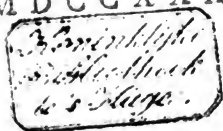 MDCCXXX
Koninklijke
Bibliotheek
te 's Hage.